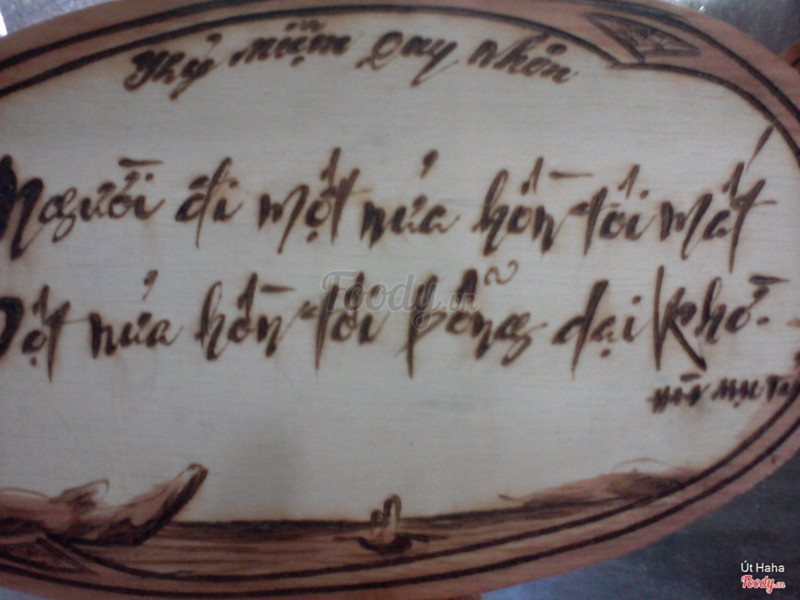 Kỷ niệm Quy Nhơn
Người đi một nửa hồn tôi mất
Một nửa hồn tôi bỗng dại khờ.
Hàn Mặc Tử
Foody.vn
Út Haha
Foody.vn